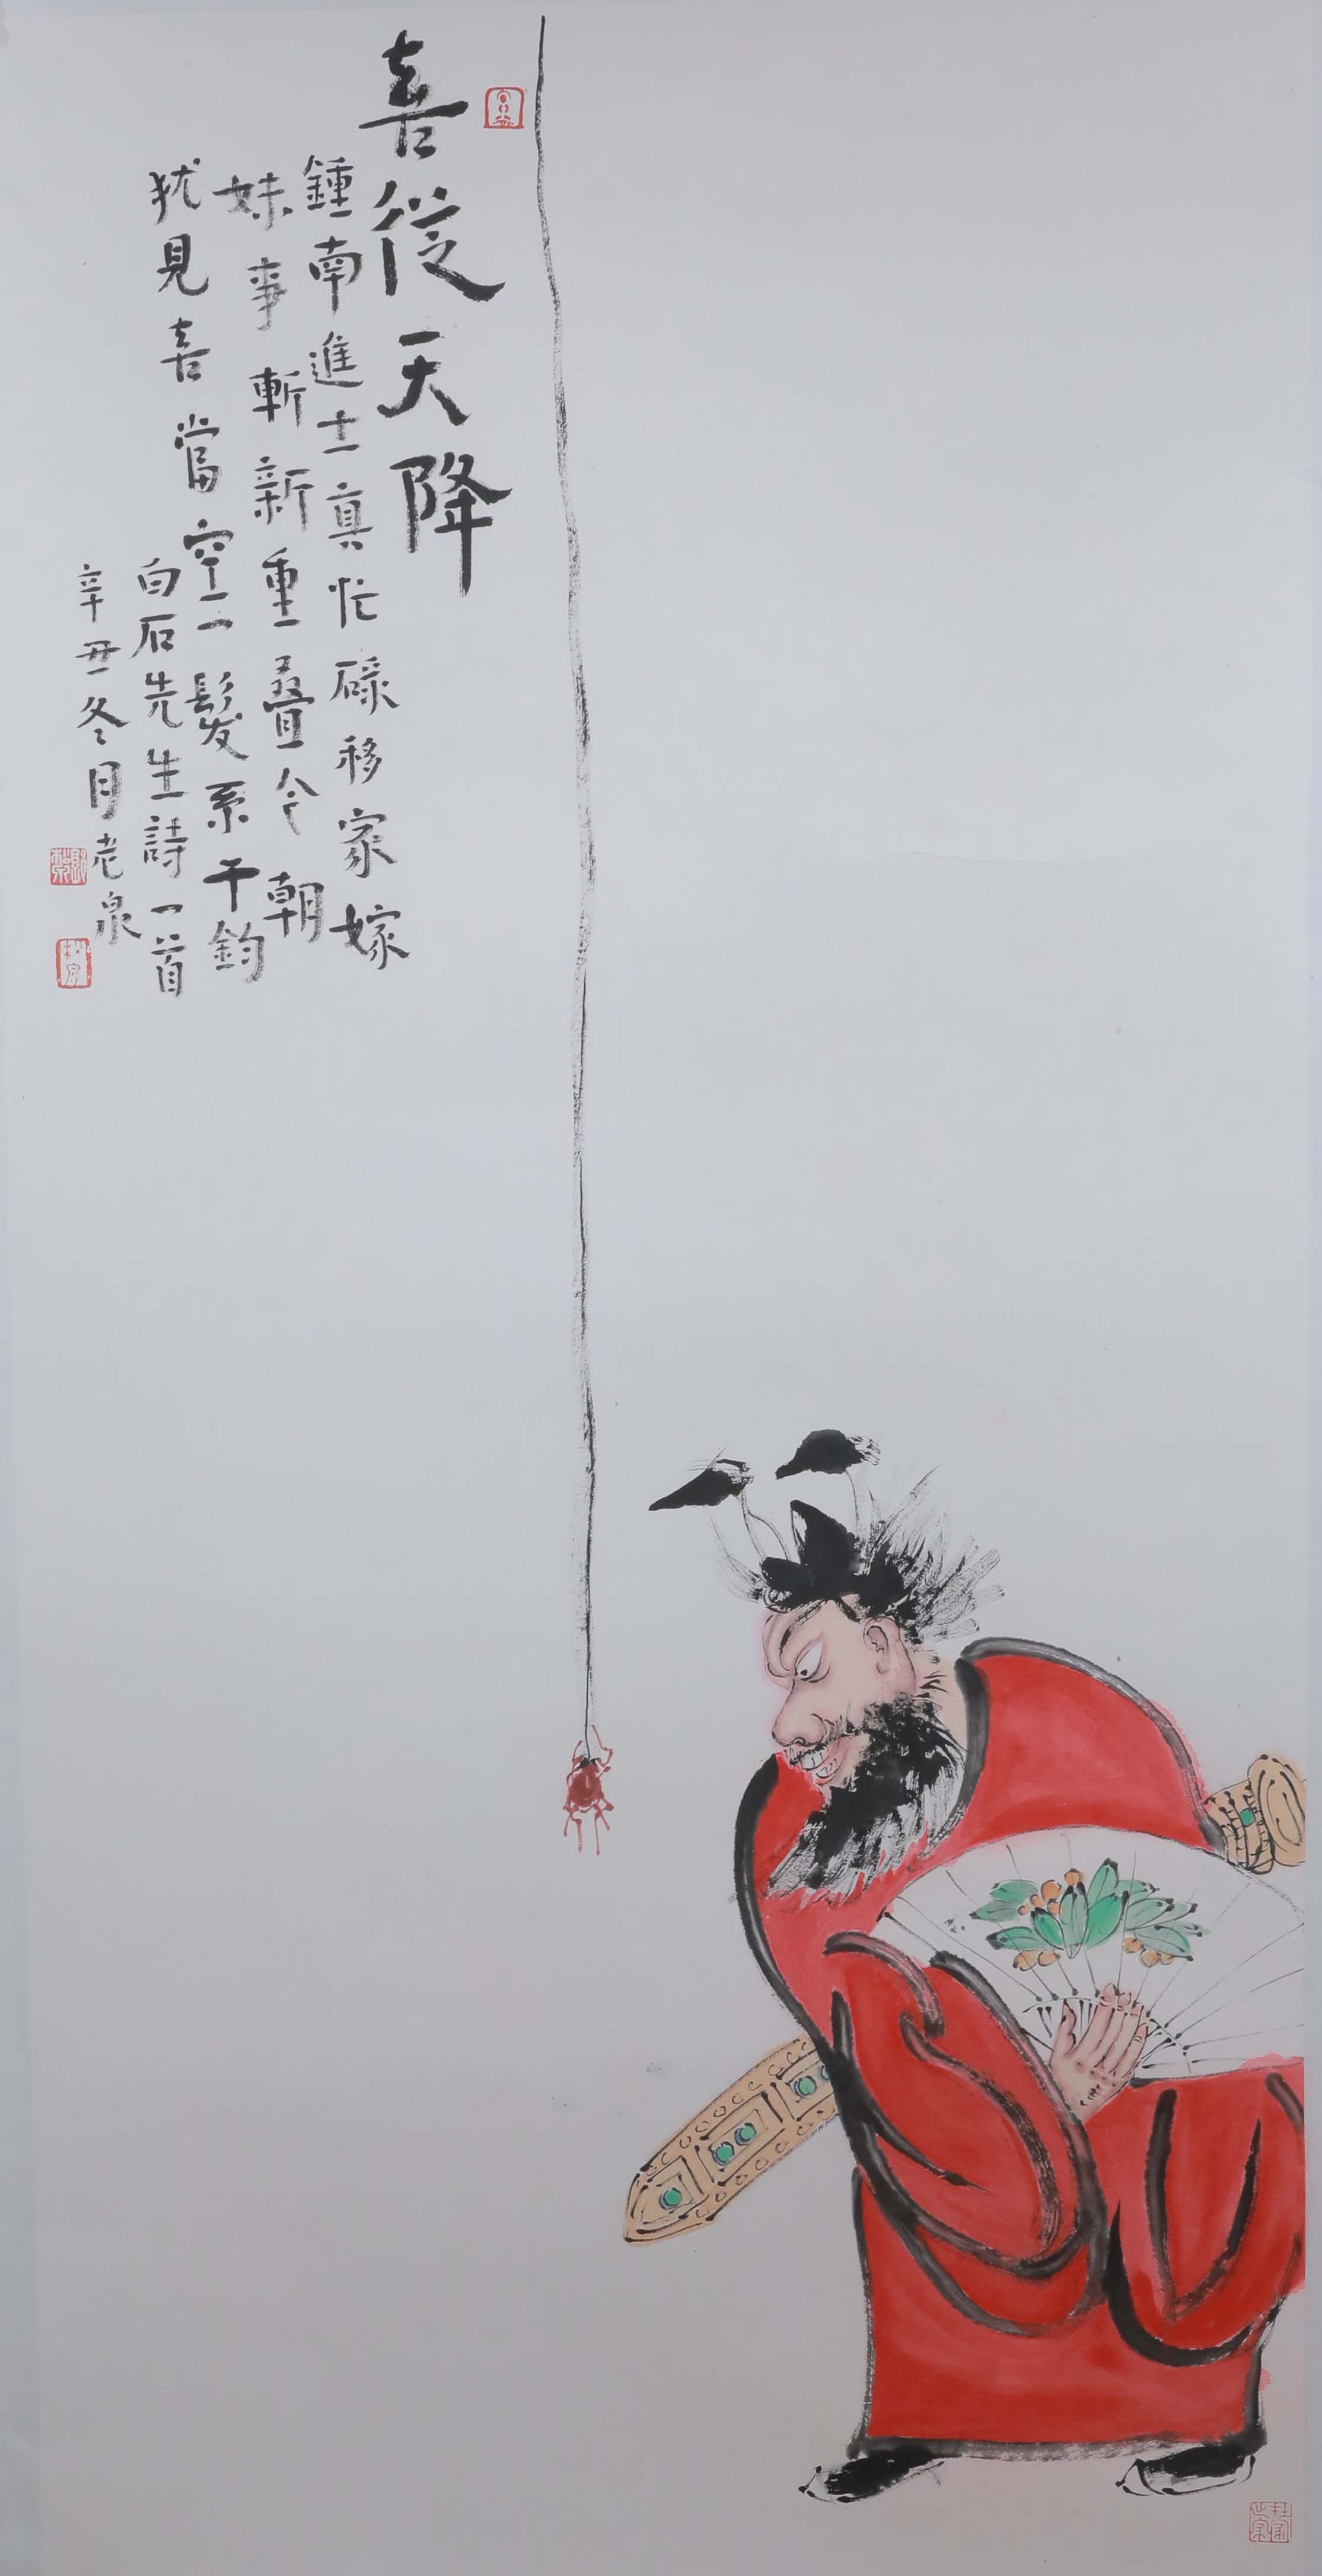 喜從天降
鍾南進士真忙碌移家嫁
妹事斬新重疊今朝
猶見喜當空一髮系千鈞
白石先生詩一首
辛丑冬月老泉